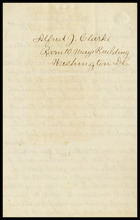 Alfred J. Clarke
Room 10 May Building
Washington D.C.